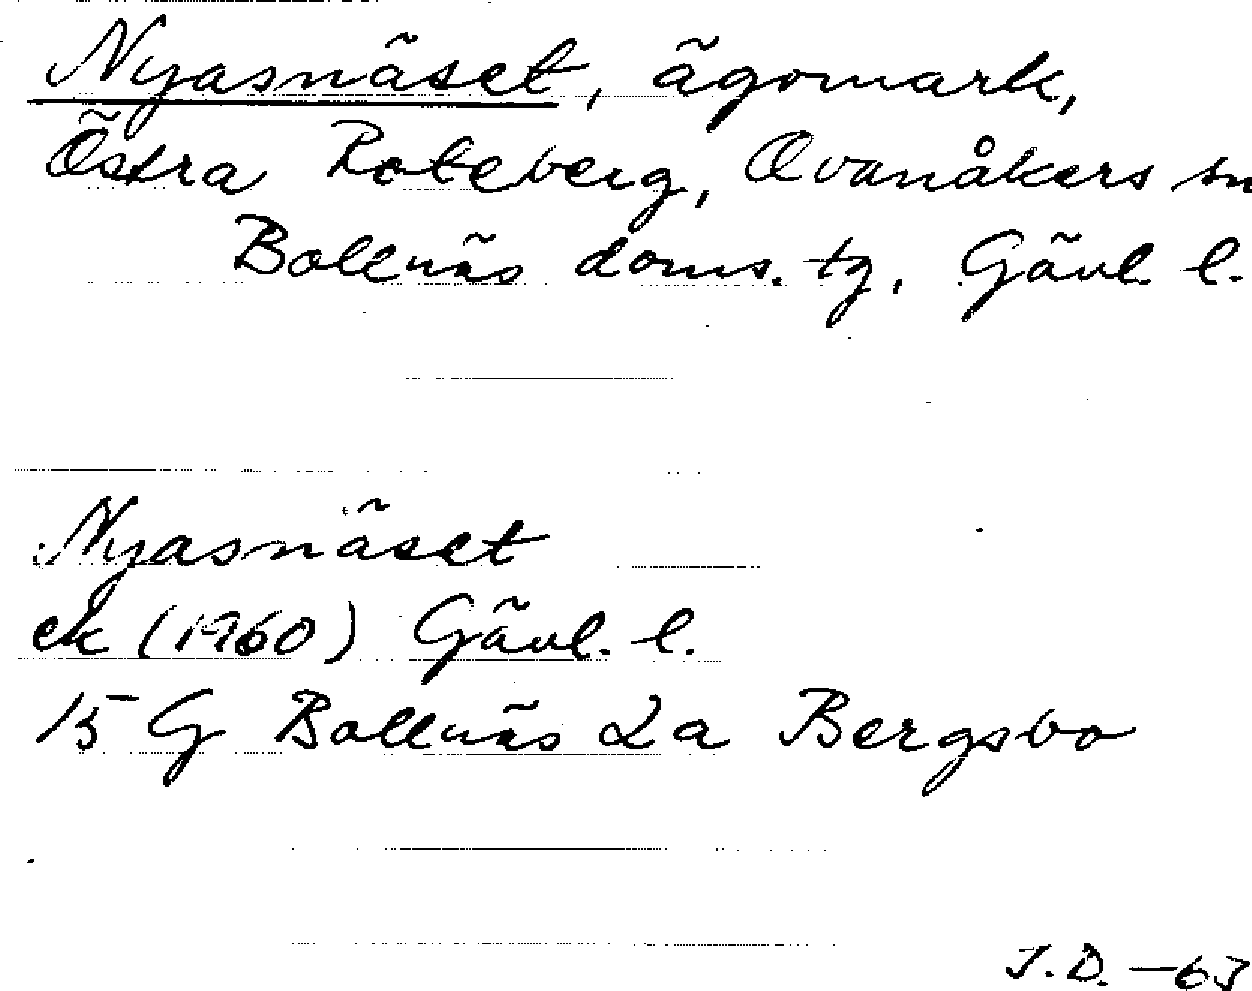 Nyasnäset, ägomark,
Östra Roteberg, Ovanåkers sn
Bollnäs doms. tg, Gävl. l.
Nyasnäset
ek (1960) Gävl. l.
15 G Bollnäs 2a Bergsbo
J.D. -63